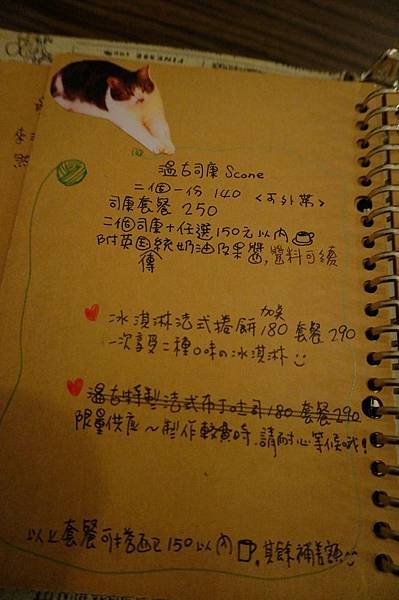 溫古司康 Scone
二個一份 140 <可外帶>
司康套餐 250
二個司康+任選150元以內
附英國傳統奶油及果醬,醬料可續
冰淇淋法式捲餅加桌180 套餐290
一次享受二種口味の冰淇淋
溫古特製法式布丁吐司180 套餐290
限量供应~製作較費時.請耐心等候哦!
以上套餐可搭配150以內,其餘補差額